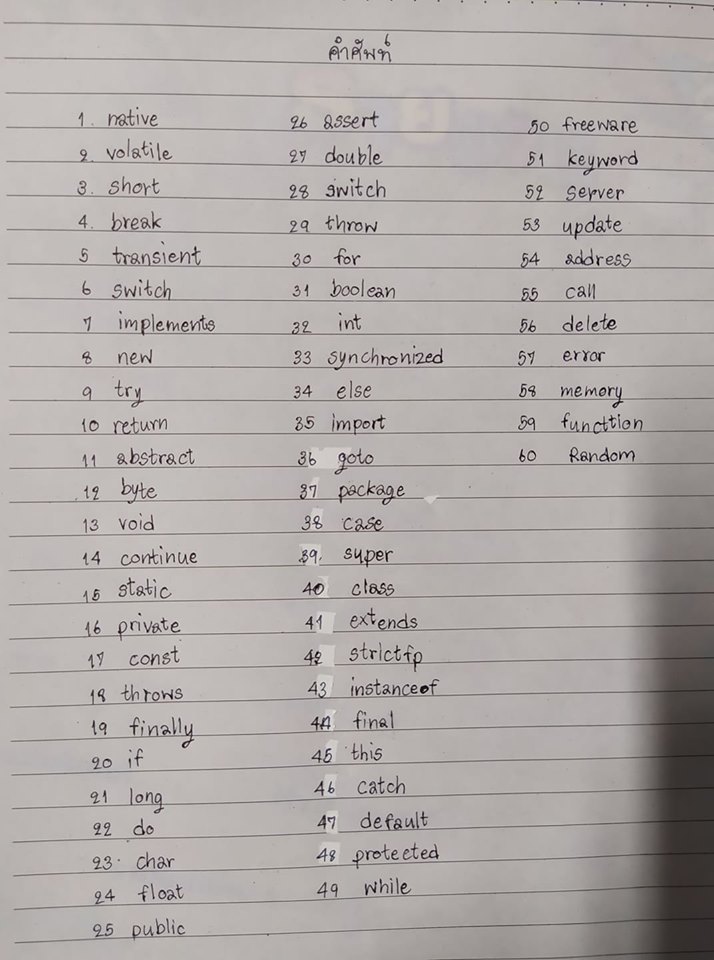 คำศัพท์
1. native
2. volatile
3. short
4. break
5 transient
6 switch
7 implements
8 new
9 try
10 return
11 abstract
12 byte
13 void
14 continue
15 static
16 private
17 const
18 throws
19 finally
20 if
21 long
22 do
23. char
24 float
25 public
26 assert
27 double
28 switch
29 throw
30 for
31 boolean
32 int
33 synchronized
34 else
35 import
36 goto
37 package
38 case
39. super
40 class
41 extends
42 strictfp
43 instanceof
44 final
45 this
46 catch
47 default
48 protected
49 while
50 freeware
51 keyword
52 server
53 update
54 address
55 call
56 delete
57 error
58 memory
59 functtion
60 Random